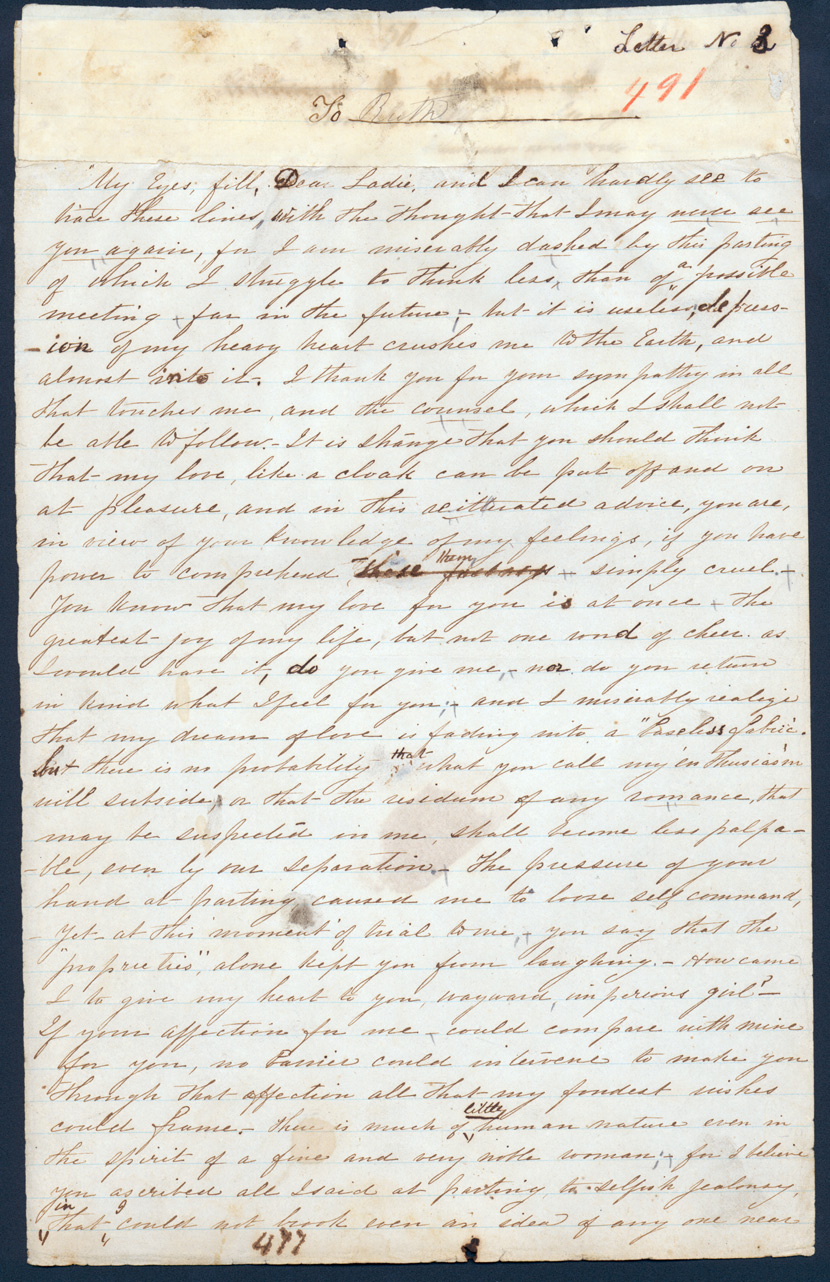 Letter No 3
491
To Ruth
"My Eyes, fill, Dear Sadie, and I can hardly see to
trace these lines, with the thought that I may never see
you again, for I am miserably dashed by this parting
of which I struggle to think less, than of a possible
meeting far in the future; but it is useless, depress-
-ion of my heavy heart crushes me to the Earth, and
almost into it. I thank you for your sympathy in all
that touches me, and the counsel, which I shall not
be able to follow. It is strange that you should think
that my love, like a cloak can be put off and on
at pleasure, and in this reitterated advice, you are,
in view of your knowledge of my feelings, if you have
power to comprehend them simply cruel.
You know that my love for you is at once the
greatest joy of my life, but not one word of cheer as
I would have it, do you give me, nor do you return
in kind what I feel for you; and I miserably realize
that my dream of love is fading into a "baseless fabric.
But there is no probability that what you call my enthusiasm
will subside, or that the residum of any romance, that
may be suspected in me, shall become less palpa-
-ble, even by our separation. The pressure of your
hand at parting caused me to loose self command,
yet at this moment of trial to me, you say that the
"proprieties", alone kept you from laughing. How came
I to give my heart to you, wayward, imperious girl?
If your affection for me could compare with mine
for you, no barrier could intervene to make you
through that affection all that my fondest wishes
could frame. there is much of little human nature even in
the spirit of a fine and very noble woman; for I believe
you ascribed all I said at parting, to selfish jealousy,
in that I could not brook even an idea of any one near
477